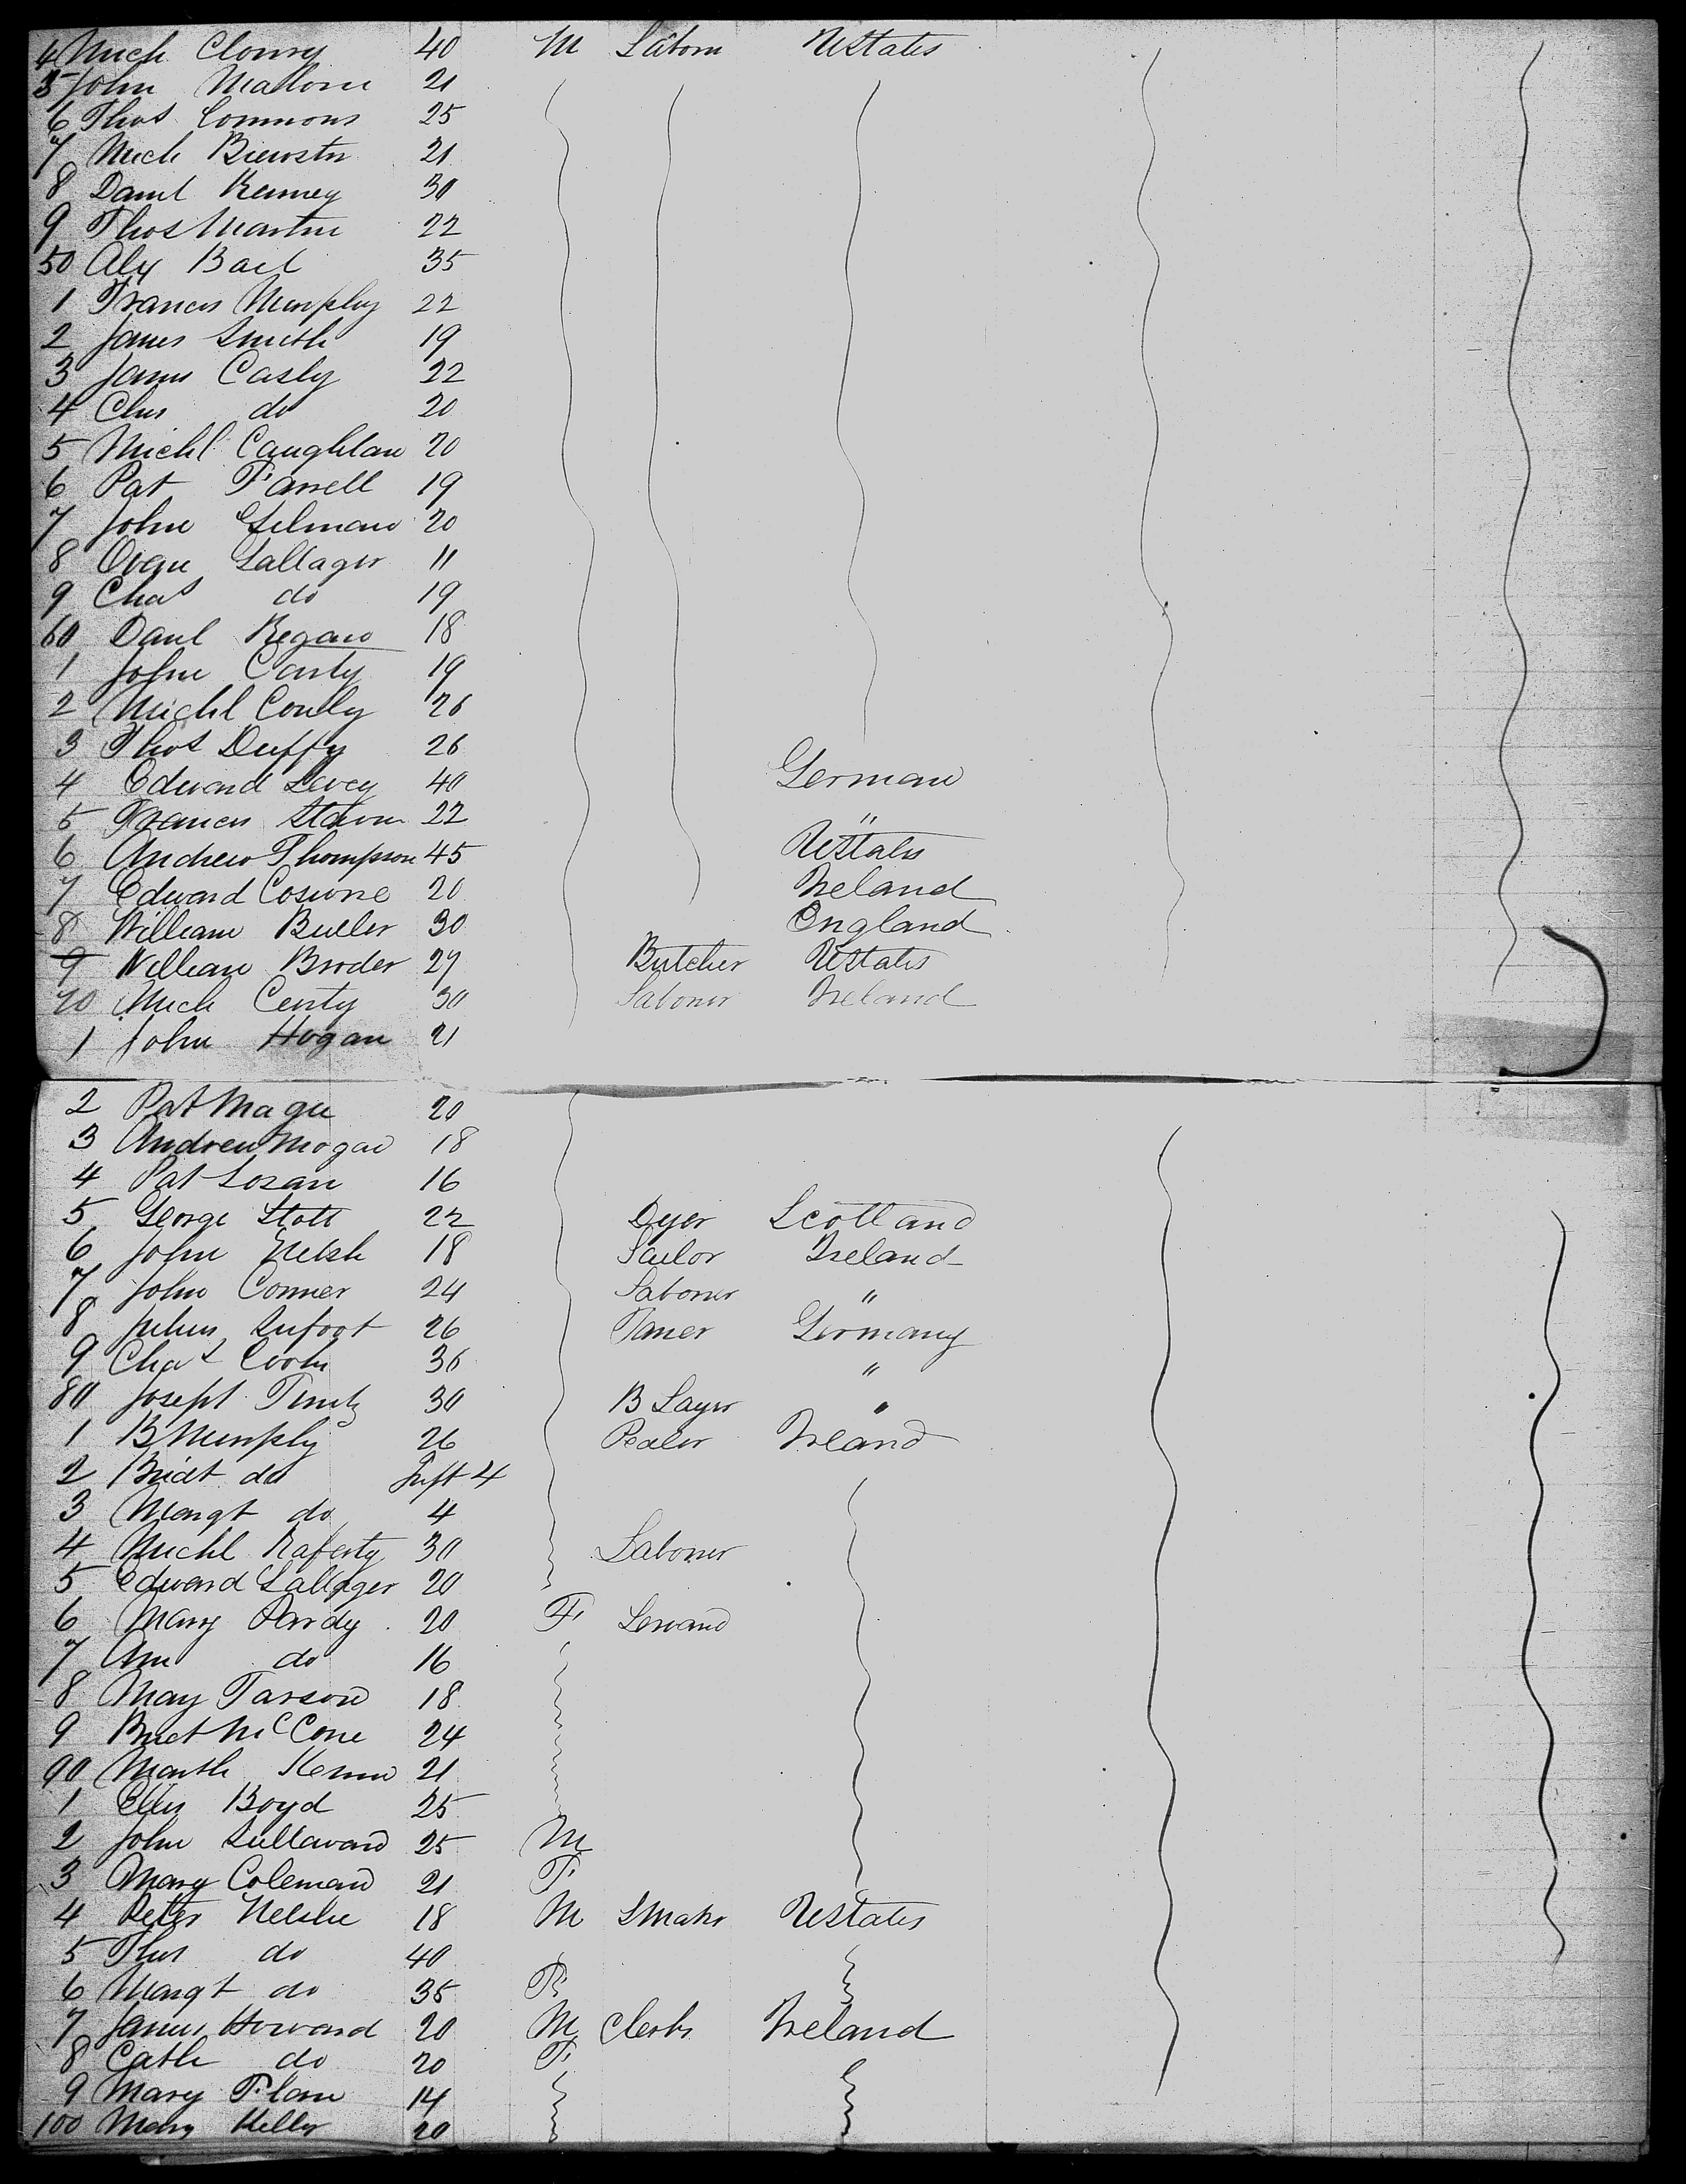 4 Mich Clowry 40 M Laborer UStates
5 John Malone 21
6 Thos Commons 25
7 Mich Brewster 21
8 Danl Kenney 30
9 Thos Martin 22
50 Alx 35
1 Francis Murphy 22
2 James Smith 19
3 James Casly 22
4 Chr do 20
5 Michl Caughlan 20
6 Pat Farrell 19
7 John Gilman 20
8 Owen Gallager 11
9 Chas do 19
60 Danl Regan 18
1 John Carty 19
2 Michl Conly 26
3 Thos Duffy 26
4 Edward Levey 40 German
5 Francis 22 "
6 Andrew Thompson 45 UStates
7 Edward 20 Ireland
8 William Buller 30 England
9 William Broder 27 Butcher UStates
70 Mich 30 Laborer Ireland
1 John Hogan 21
2 Pat Magee 20
3 Andrew Mogan 18
4 Pat Logan 16
5 George Stott 22 Dyer Scotland
6 John Welsh 18 Sailor Ireland
7 John Conner 24 Laborer "
8 Julius 26 Taner Germany
9 Chas 36 "
80 Joseph 30 B Layer "
1 B Murphy 26 Pealer Ireland
2 Bridt do Inft 4
3 Margt do 4
4 Michl Raferty 30 Laborer
5 Edward Gallager 20
6 Mary Pardy 20 F Servand
7 Ann do 16
8 May Tarson 18
9 Bridt McCone 24
90 Marth 21
1 Ellen Boyd 25
2 John Sullavand 25 M
3 Mary Coleman 21 F
4 Peter Welshe 18 M SMakr UStates
5 Thos do 40
6 Margt do 35 F
7 James Howard 20 M Clerk Ireland
8 Cath do 20 F
9 Mary 14
100 Mary Kelly 20